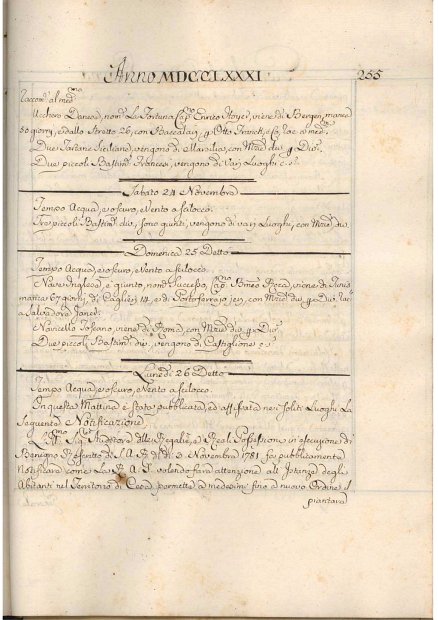 Anno MDCCLXXXI. 255
Raccom: al med:mo
Uchero Danese, nom: La Fortuna Cap:
50 giorni, e dallo Stretto 26, con Baccalari, p Otto Franck, e Co:
Due Tartane Siciliane, vengono di Marsilia, con Mrie div: p Div:
Due piccoli Bastim: Francesi, vengono di Varj Luoghi e. s.
Sabato 24 Novembre
Tempo Acqua, e oscuro, e Vento a scilocco.
Tre piccoli Bastim: div:, sono giunti, vengono di varj Luoghi, con Mrie div:
Domenica 25 Detto
Tempo Acqua, e oscuro, e Vento a scilocco.
Nave Inglese, è giunto, nom: Successo, Cap:no Romeo Roca, viene di
manca 67 giorni, di Caglieri 14 e di Portoferrajo jeri, con Mrie div: p Div:
a Salvadore
Navicello Toscano, viene di Roma, con Mrie div: p Div:
Due piccoli Bastim: div:, vengono di Castiglione e. s.
Lunedì 26 Detto
Tempo Acqua, e oscuro, e Vento a scilocco.
In questa Mattina è stata pubblicata, ed affissata nei soliti Luoghi La
seguente Notificazione.
L'Ill:mo Sig:e Auditore delle Regalie, e Reali Possessioni in esecuzione di
Benigno Rescritto di S. A. R. di di Novembre 1781. fa pubblicamente
Notificare come La R. A. S. volendo fare attenzione alle Istanze degli
Abitanti nel Territorio di permette a medesimi fino a nuovo Ordine, il
piantare